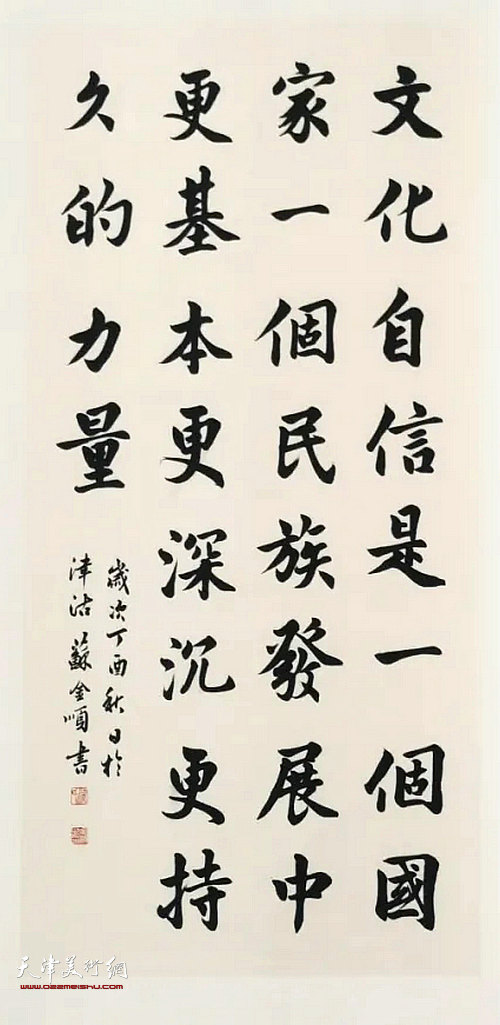 文化自信是一個國
家一個民族發展中
更基本更深沉更持
久的力量
歲次丁酉秋日於
津沽蘇金順書
天津美術網
www.022meishu.com